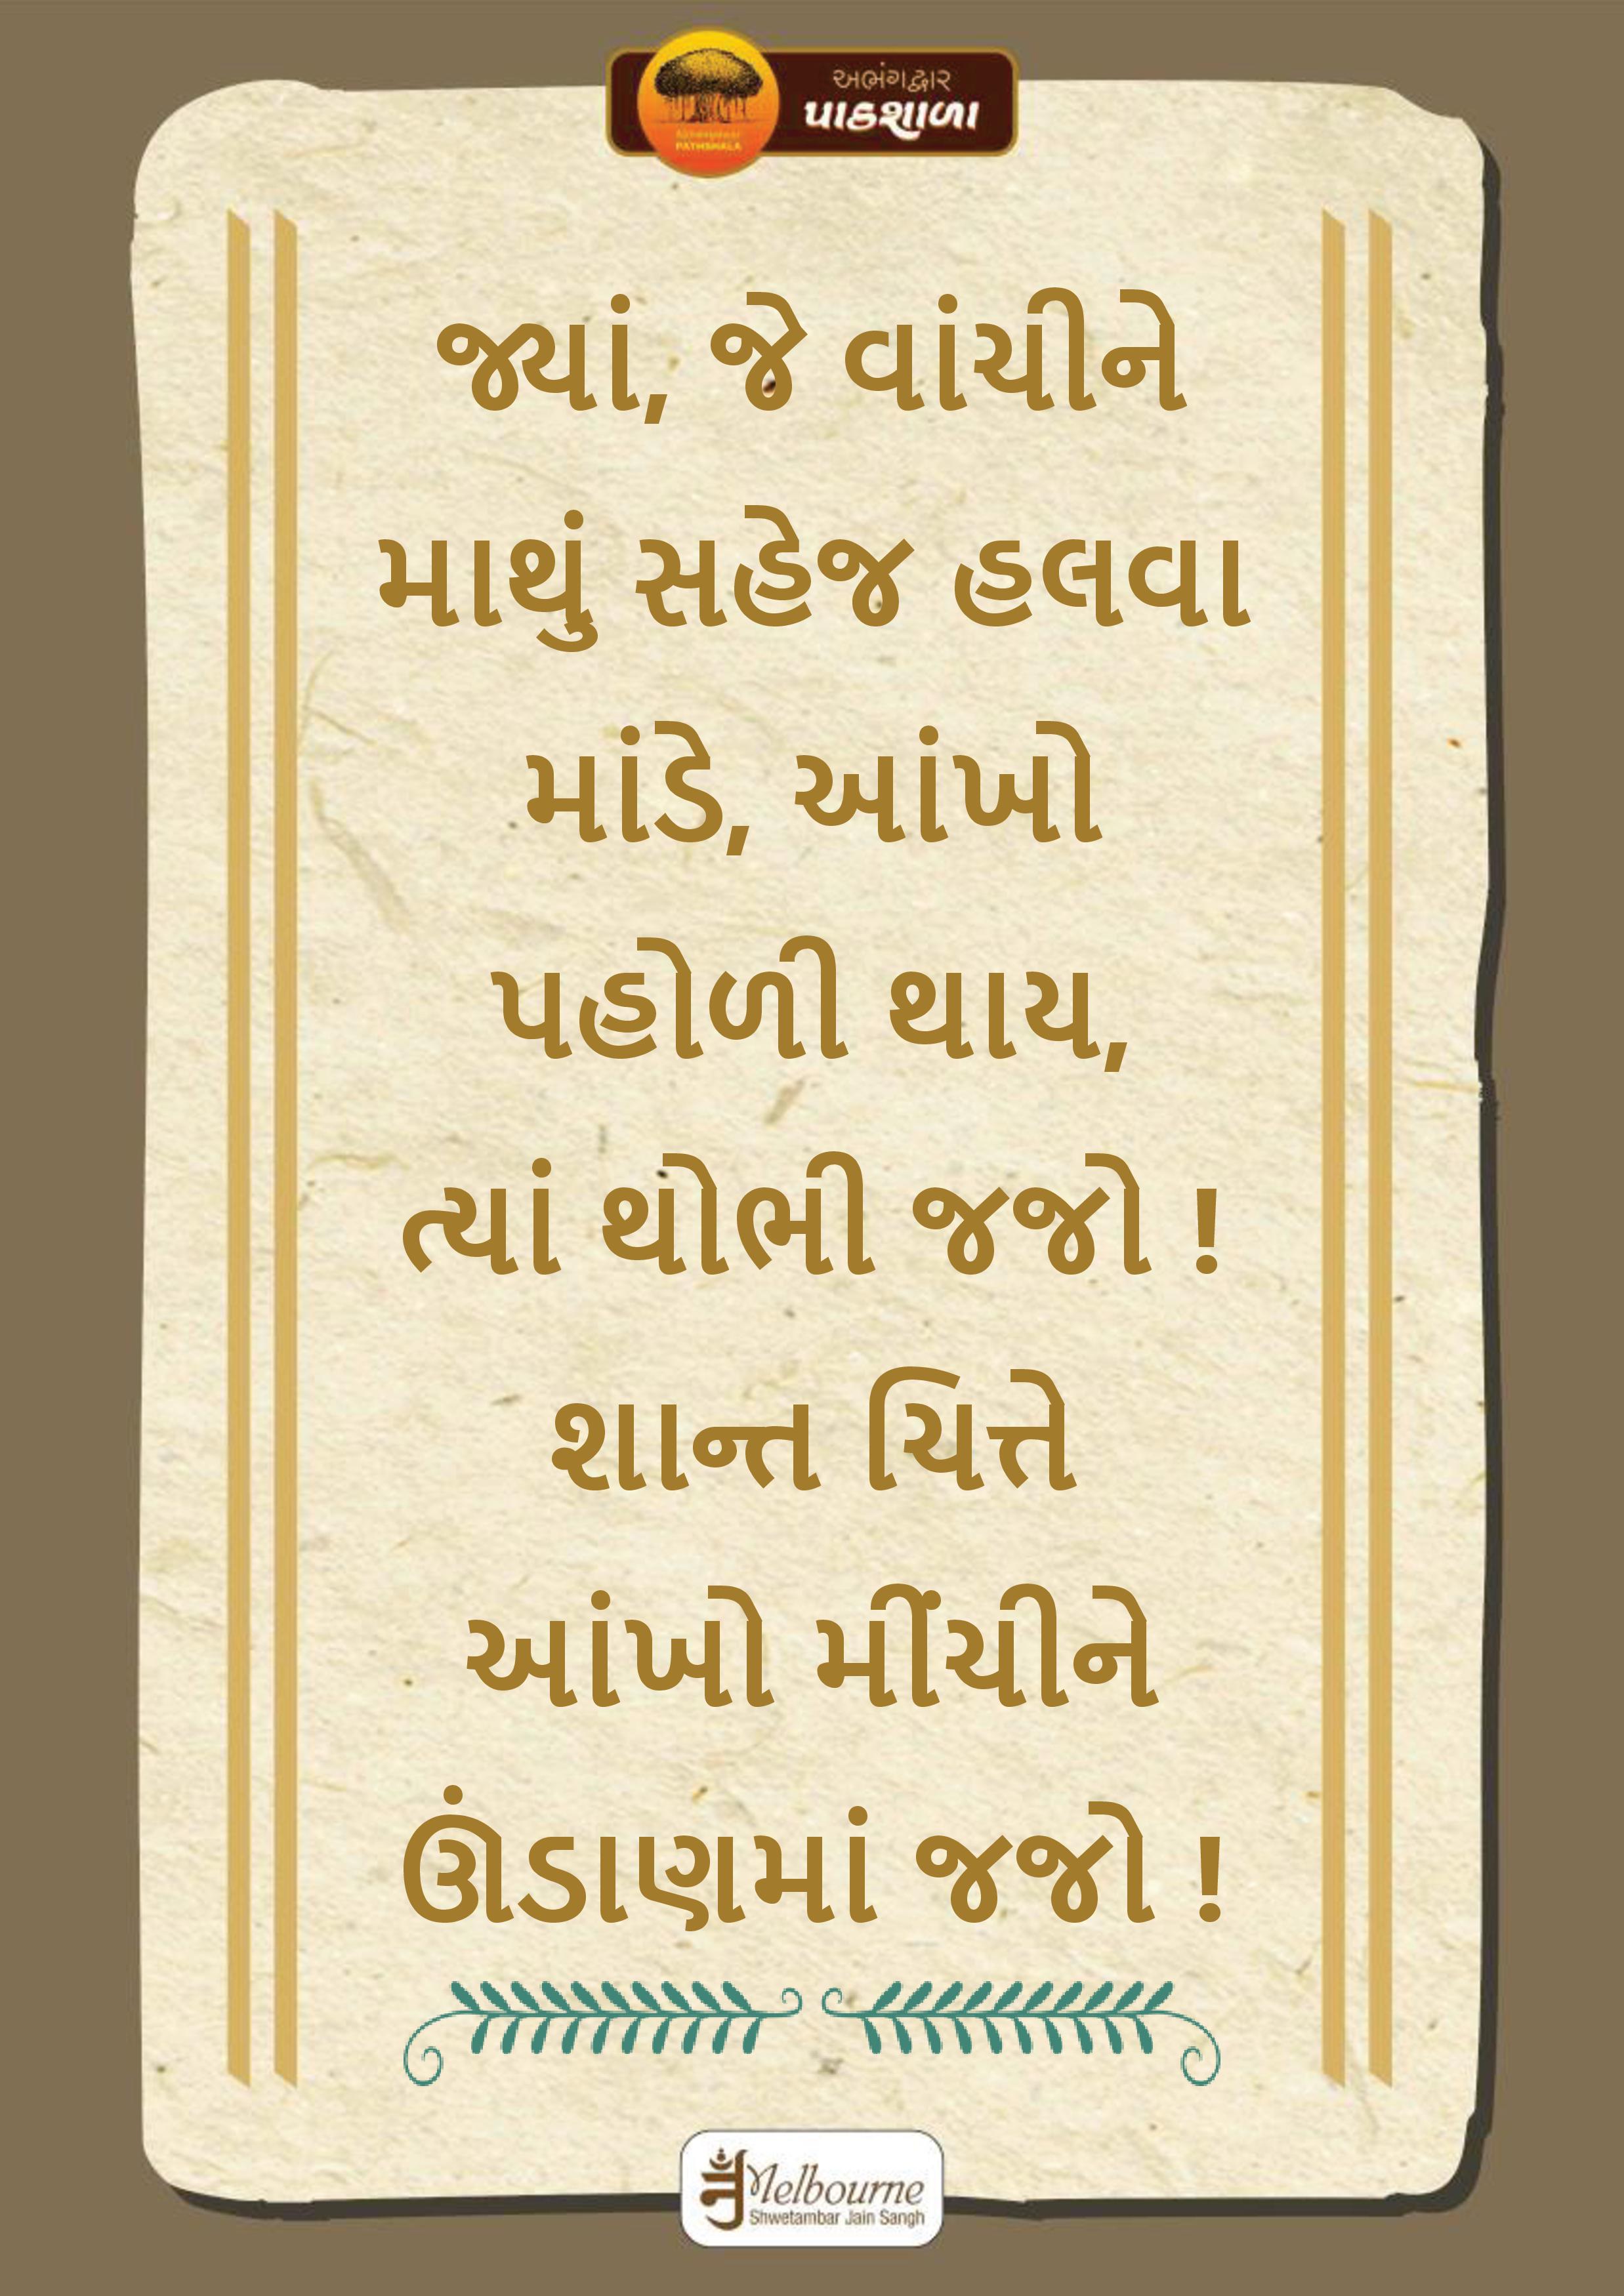 અભંગદ્વાર
પાઠશાળા
PATHSHALA
જ્યાં, જે વાંચીને
માથું સહેજ હલવા
માંડે, આંખો
પહોળી થાય,
ત્યાં થોભી જજો !
શાન્ત ચિત્તે
આંખો મીંચીને
ઊંડાણમાં જજો !
Melbourne
Shwetambar Jain Sangh